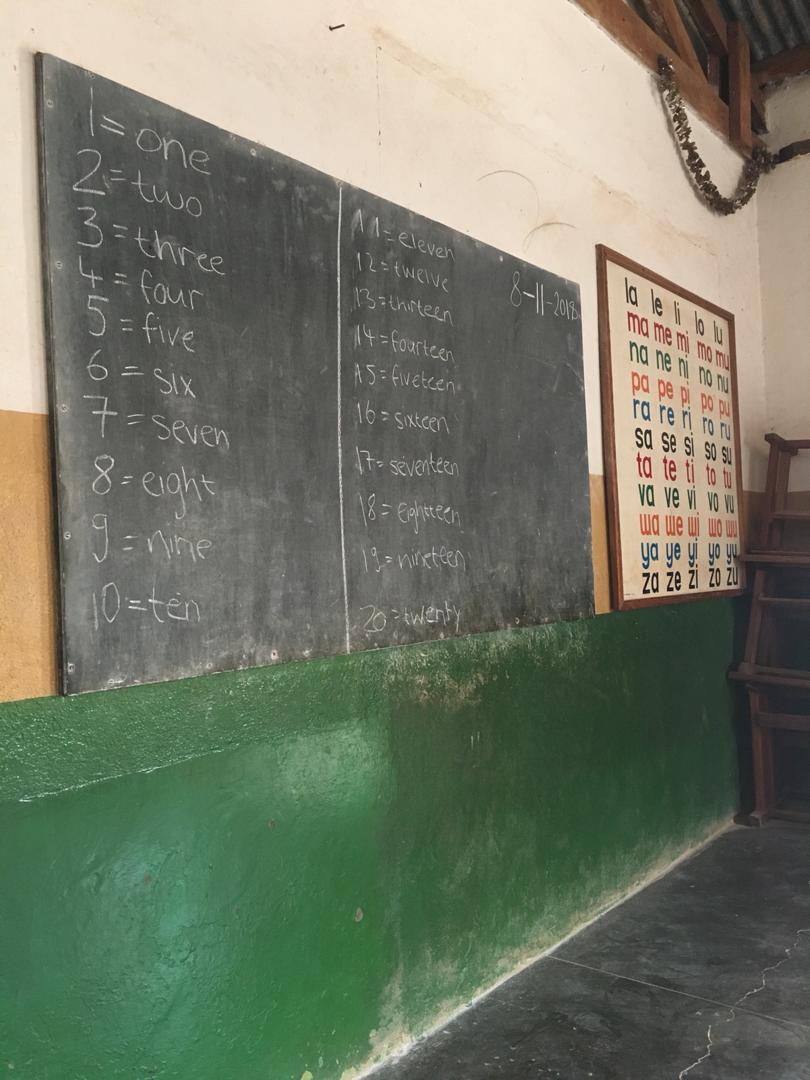 1= one
2= two
3= three
4= four
5= five
6= six
7= seven
8= eight
9= nine
10= ten
11= eleven
12= twelve
13= thirteen
14= fourteen
15= fiveteen
16= sixteen
17= seventeen
18= eighteen
19= nineteen
20= twenty
8-11-2018
la le li lo lu
ma me mi mo mu
na ne ni no nu
pa pe pi po pu
ra re ri ro ru
sa se si so su
ta te ti to tu
va ve vi vo vu
wa we wi wo wu
ya ye yi yo yu
za ze zi zo zu